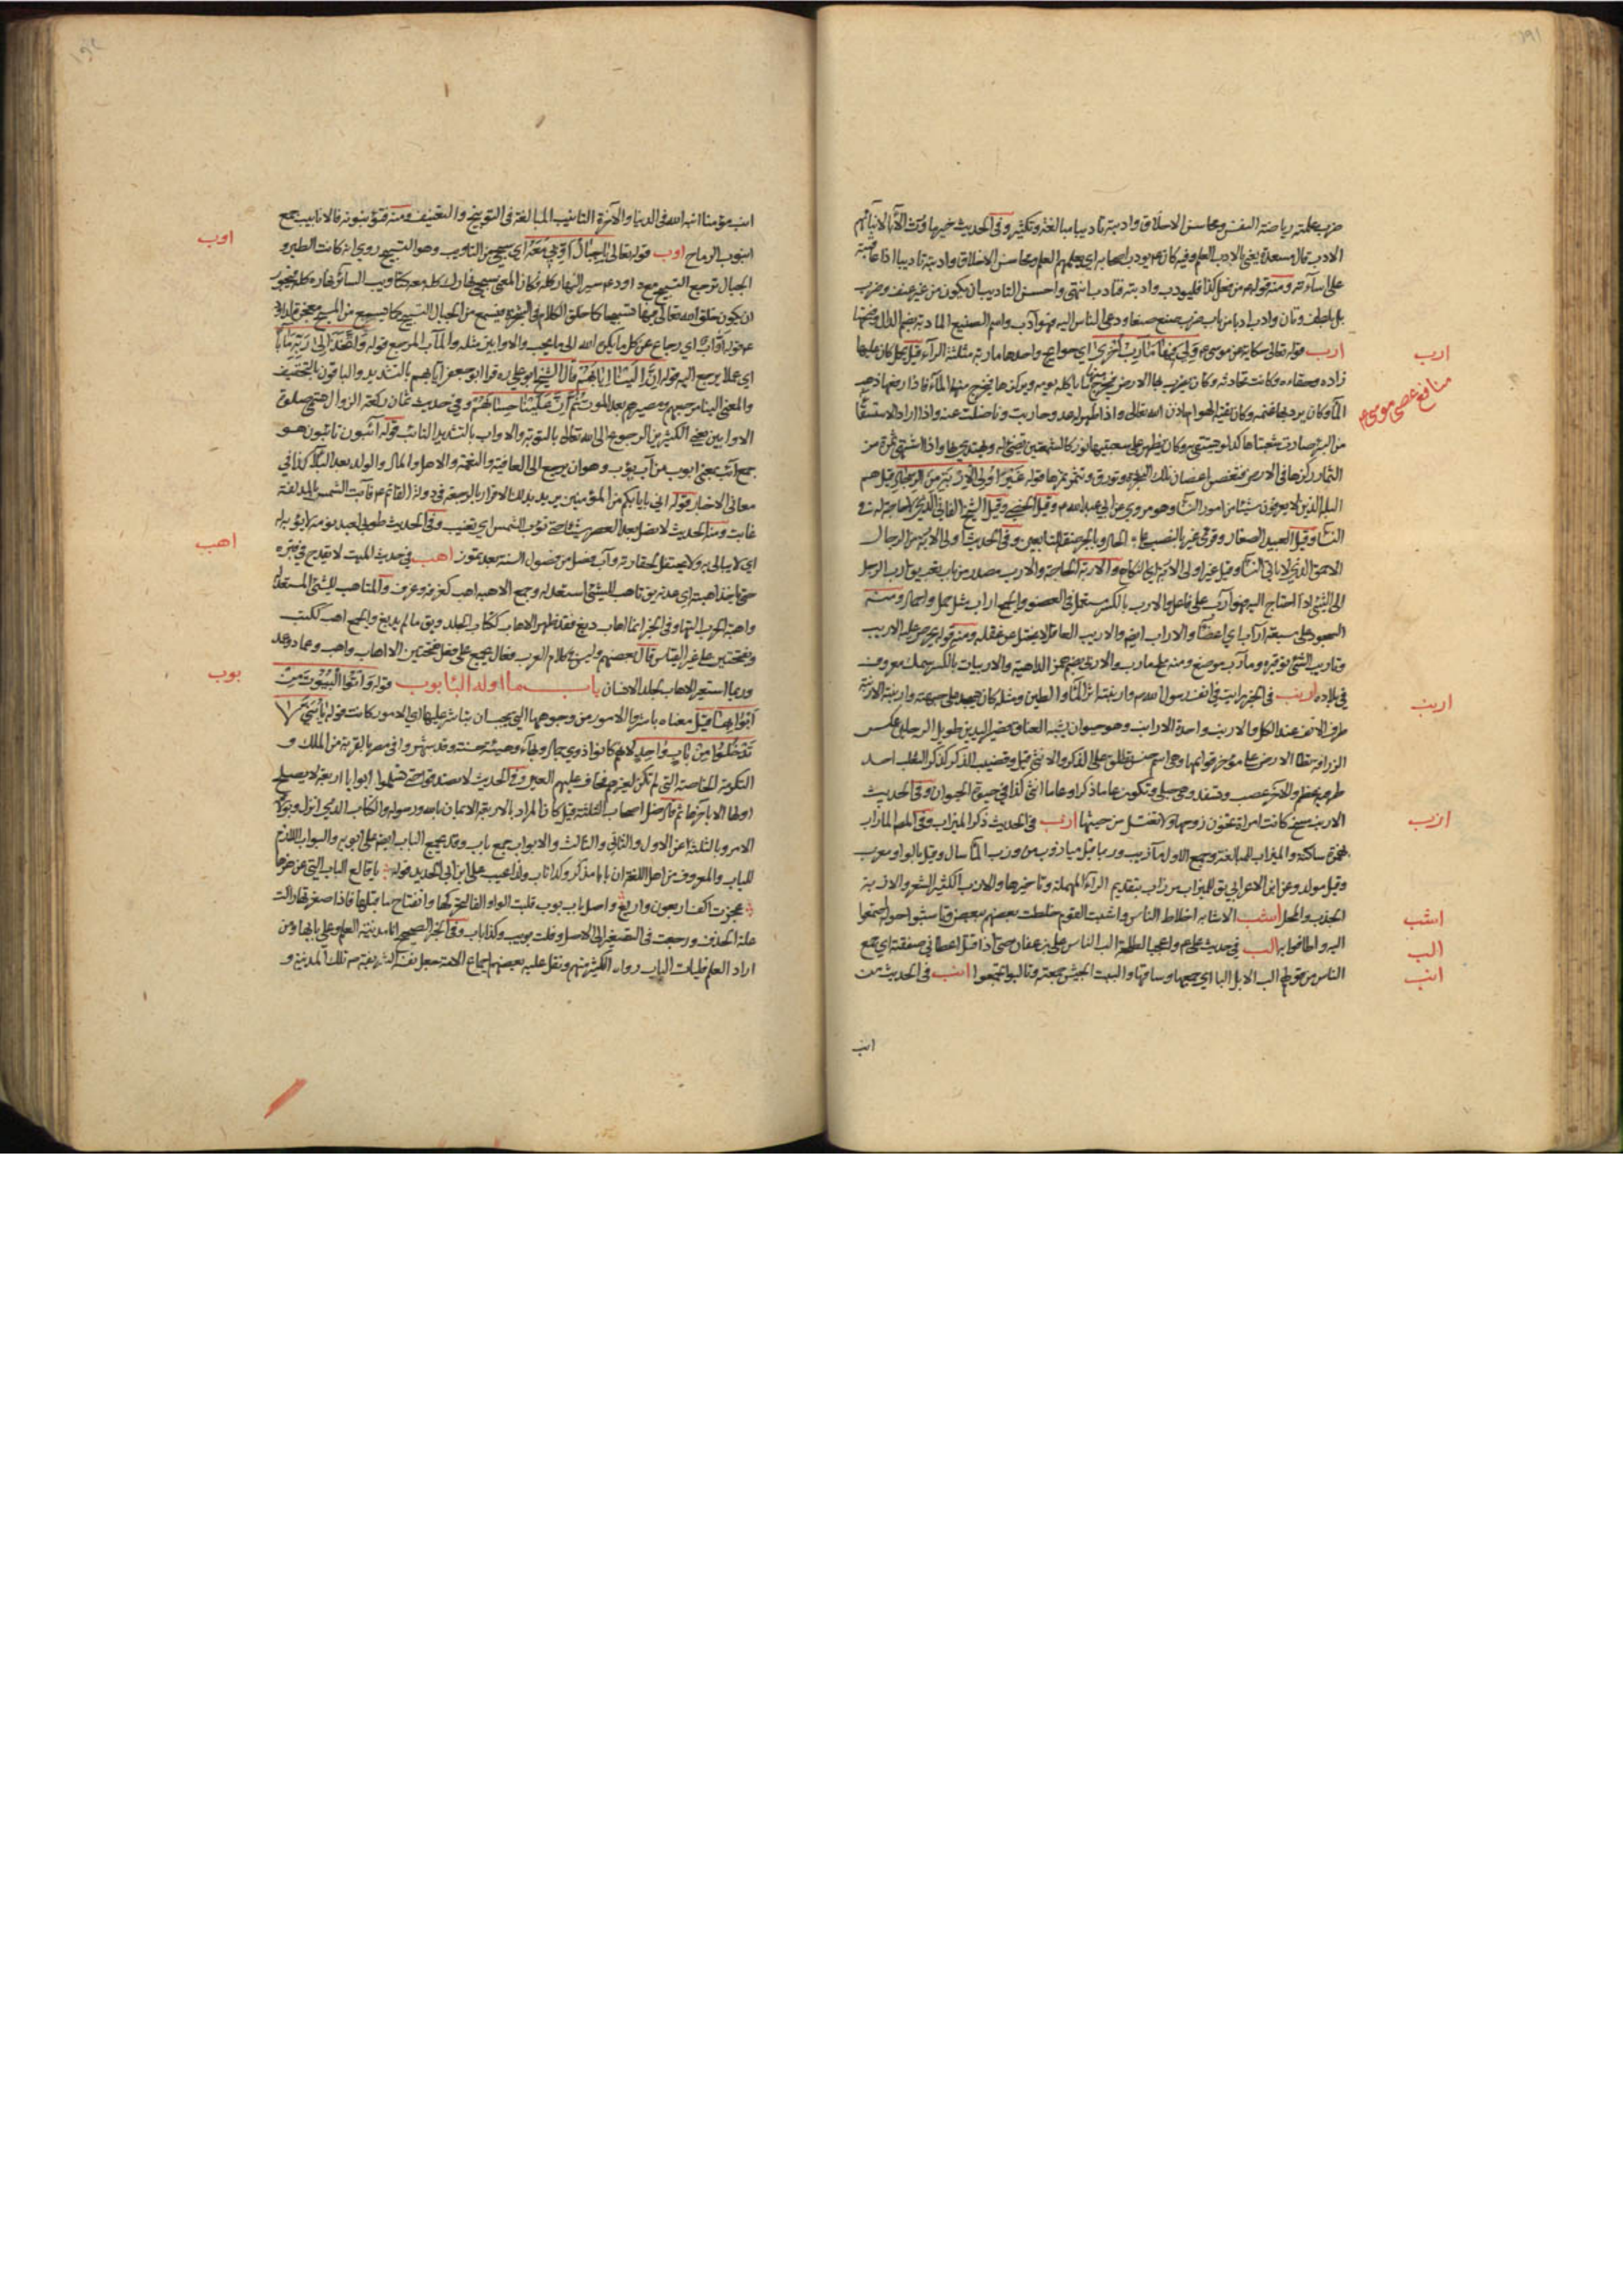 ١٩١
ضرب علمته رياضة النفس ومحاسن الاخلاق وادبته تاديبا مبالغة وتكثير وفى الحديث خير ما ورث الآباء لابنائهم
الادب قال مسعدة يعنى بالادب العلم وفيه كان ع يودب اصحابه اى يعلمهم العلم ومحاسن الاخلاق وادبته تاديبا اذا عاقبته
على اساءته ومنه قوله ع من فعل كذا فليودب وادبته فتادب انتهى واحسن التاديب ان يكون من غير عنف وضرب
بل بلطف وتان وادب ادبا من باب ضرب صنع صنيعا ودعى الناس اليه فهو آدب واسم الصنيع المادبة بضم الدال وفتحها
ارب قوله تعالى حكاية عن موسى ع وَلِيَ فِيهَا مَآرِبُ أُخْرَى اى حوايج واحدها ماربة مثلثة الرآء قيل كان عليها
زاده وسقاءه وكانت تحادثه وكان يضرب بها الارض فيخرج منها ما ياكله يومه ويركزها فيخرج منها المآء فاذا رفعها ذهب
المآء وكان يرد بها غنمه وكان تقيه الهوام باذن الله تعالى واذا ظهر له عدو حاربت وناضلت عنه واذا اراد الاستسقآء
من البئر صارت شعبتاها كدلو فيستقى به وكان يظهر على شعبتيها نور كالشمعتين تضئ له ويهتدى بها واذا اشتهى ثمرة من
الثمار ركزها فى الارض فتغصن اغصان تلك الشجرة وتورق وتثمر ثمرها قوله غَيْرِ أُولِي الْإِرْبَةِ مِنَ الرِّجَالِ قيل هم
البله الذين لا يعرفون شيئا من امور النسآء وهو مروي عن ابى عبدالله ع وقيل الخصى وقيل الشيخ الفانى الذى لا حاجة له فى
النسآء وقيل العبيد الصغار وقرئ غير بالنصب على الحال وبالجر صفة للتابعين وفى الحديث اولى الاربة من الرجال
الاحمق الذى لا ياتى النسآء وقيل غير اولى الاربة اى النكاح والاربة الحاجة والارب مصدر من باب تعب يق ارب الرجل
الى الشئ اذا احتاج اليه فهو آرب على فاعل والارب بالكسر يستعمل فى العضو والجمع اراب مثل حمل واحمال ومنه
السجود على سبعة آراب اى اعضآء والاراب ايضا والاريب العاقل لا يختل عن عقله ومنه قوله يحرص عليه الاريب
وتاريب الشئ توفيره ومآرب موضع ومنه ملح مارب والاربى بضم الهمزة الداهية والاربيان بالكسر سمك معروف
فى بلاده ارنب فى الخبر رايت فى انف رسول الله ص وارنبته اثر المآء والطين ومثله كان يسجد على جبهته وارنبته الارنبة
طرف الانف عند الكل والارنب واحدة الارانب وهو حيوان يشبه العناق قصير اليدين طويل الرجلين عكس
الزرافة يطا الارض على مؤخر قوايمها وهى اسم جنس يطلق على الذكر والانثى قيل وقضيب الذكر كذكر الثعلب احد
طرفيه عظم والاخر عصب وتسفد وهى حبلى وتكون عاما ذكرا وعاما انثى كذا فى حيوة الحيوان وفى الحديث
الارنب مسخ كانت امراة تخون زوجها ولا تغتسل من حيضها ازب فى الحديث ذكر الميزاب وفى المص المازاب
بهمزة ساكنة والميزاب الميالغة وجمع الاول مآزيب وربما قيل ميازيب من وزب المآء سال وقيل بالواو معرب
وقيل مولد وعن ابن الاعرابى يق للميزاب مرزاب بتقديم الرآء المهملة وتاخيرها والازب الكثير الشعر والازبة
الجدب والمحل اشب الاشابه اخلاط الناس واشبت القوم خلطت بعضهم ببعض وتاشبوا حوله اجتمعوا
اليه واطافوا به الب فى حديث على ع واعجبا لطلحة الب الناس على بن عفان حتى اذا قتل اعطانى صفقته اى جمع
الناس من قولهم الب الابل البا اى جمعها وساقها والبت الجيش جمعته وتالبوا تجمعوا انب فى الحديث من
انب
ارب
منافع عصى موسى ع
ارنب
ازب
اشب
الب
انب
١٩٢
انب مؤمنا انبه الله فى الدنيا والاخرة التانيب المبالغة فى التوبيخ والتعنيف ومنه فتؤنبونه فالانابيب جمع
انبوب الرماح اوب قوله تعالى يَا جِبَالُ أَوِّبِي مَعَهُ اى سبحى من التاويب وهو التسبيح روى انه كانت الطير و
الجبال ترجع التسبيح مع داود ع سير النهار كله فكان المعنى سبحى نهارك كله معه كتاويب السائر نهاره كله فيجوز
ان يكون خلق الله تعالى فيها تسبيحا كما خلق الكلام فى الشجرة فيسمع من الجبال التسبيح كما يسمع من المسبح معجزة لداود
ع قوله أَوَّابٌ اى رجاع عن كل ما يكره الله الى ما يحب والاوابين مثله والمآب المرجع قوله وَاتَّخَذَ إِلَى رَبِّهِ مَآبًا
اى عملا يرجع اليه قوله إِنَّ إِلَيْنَا إِيَابَهُمْ قال الشيخ ابوعلى ره قرا ابوجعفر ايابهم بالتشديد والباقون بالتخفيف
والمعنى الينا مرجعهم ومصيرهم بعد الموت ثُمَّ إِنَّ عَلَيْنَا حِسَابَهُمْ وفى حديث ثمان ركعة الزوال هى صلوة
الاوابين يعنى الكثيرين الرجوع الى الله تعالى بالتوبة والاواب بالتشديد التائب قوله آئبون تائبون هو
جمع آئب بمعنى ايوب من آب يؤب وهو ان يرجع الى العافية والنعمة والاهل والمال والولد بعد البلاء كذا فى
معانى الاخبار قوله انى بايابكم من المؤمنين يريد بذلك الاقرار بالرجعة فى دولة القائم ع فآبت الشمس بالمد لغة
غابت ومنه الحديث لا تصل بعد العصر شيئا حتى تؤب الشمس اى تغيب وفى الحديث طوبى لعبد نومة لا يؤبه له
اى لا يبالى به ولا يحتفل لحقارته وآب فصل من فصول السنة بعد تموز اهب فى حديث الميت لا تقدح فى قبره
حتى ياخذ اهبته اى عدته يق تاهب للشئ استعد له وجمع الاهبة اهب كغرفة وغرف والمتاهب للشئ المستعد له
واهبة الحرب التها وفى الخبر ايما اهاب دبغ فقد طهر الاهاب ككتاب الجلد ويق ما لم يدبغ والجمع اهب ككتب
وبفتحتين على غير القياس قال بعضهم وليس فى كلام العرب فعال يجمع على فعل بفتحتين الا اهاب واهب وعماد وعمد
وربما استعير الاهاب لجلد الانسان باب ما اوله البآء بوب قوله وَأْتُوا الْبُيُوتَ مِنْ
أَبْوَابِهَا قيل معناه باشروا الامور من وجوهها التى يجب ان يباشر عليها اى الامور كانت قوله يَا بَنِيَّ لَا
تَدْخُلُوا مِنْ بَابٍ وَاحِدٍ لانهم كانوا ذوى جمال وبهاء وهيئة حسنة وقد شهروا فى مصر بالقربة من الملك و
التكرمة الخاصة التى لم تكن لغيرهم فخاف عليهم العين وفى الحديث لا تصدقوا حتى تسلموا ابوابا اربعة لا يصلح
اولها الا باخرها ثم قال ضل اصحاب الثلثة قيل كان المراد بالاربعة الايمان بالله ورسوله والكتاب الذى انزل وبولاة
الامر وبالثلثة اعنى الاول والثانى والثالث والابواب جمع باب وقد يجمع الباب ايضا على ابوبه والبواب اللازم
للباب والمعروف من اهل اللغة ان بابا مذكر وكذا ناب ولذا عيب على ابن ابى الحديد قوله يا قالع الباب التى عن هزها
عجزت اكف اربعون واربع واصل باب بوب قلبت الواو الفا لتحركها وانفتاح ما قبلها فاذا صغرتها زالت
علة الحذف ورجعت فى التصغير الى الاصل وقلت بويب وكذا ناب وفى الخبر الصحيح انا مدينة العلم وعلى بابها ومن
اراد العلم فليات الباب رواه الكثير منهم ونقل عليه بعضهم اجماع الامة جعل نفسه الشريفة ص تلك المدينة و
اوب
اهب
بوب